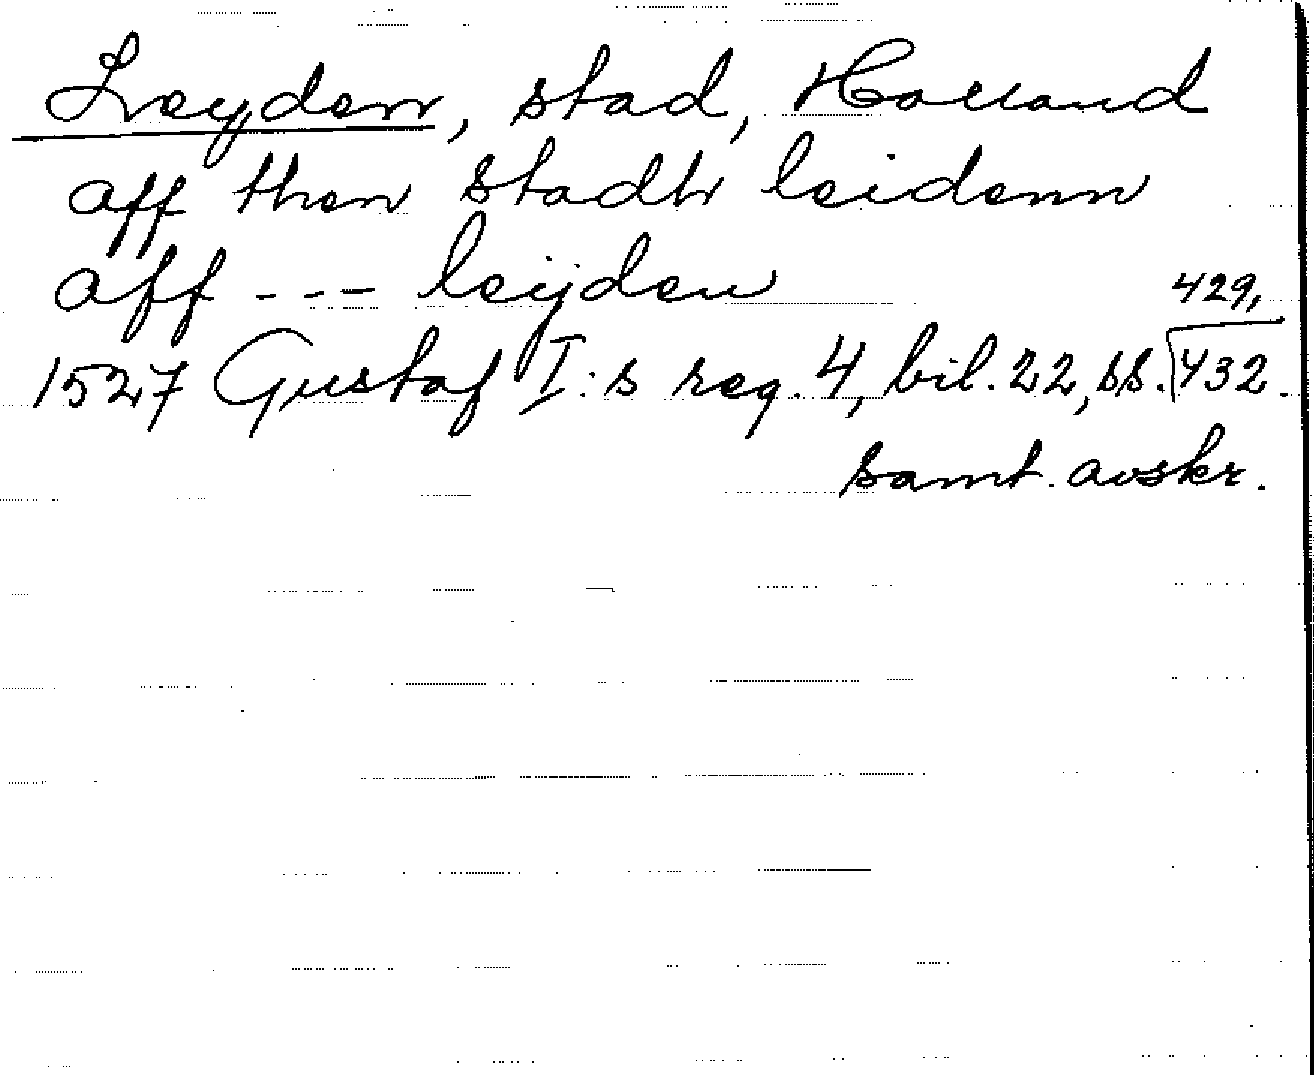 Leyden, stad, Holland
aff then stadh leidenn
aff --- leijden
429,
1527 Gustaf I:s reg. 4, bil. 22, ss. 432.
samt. avskr.